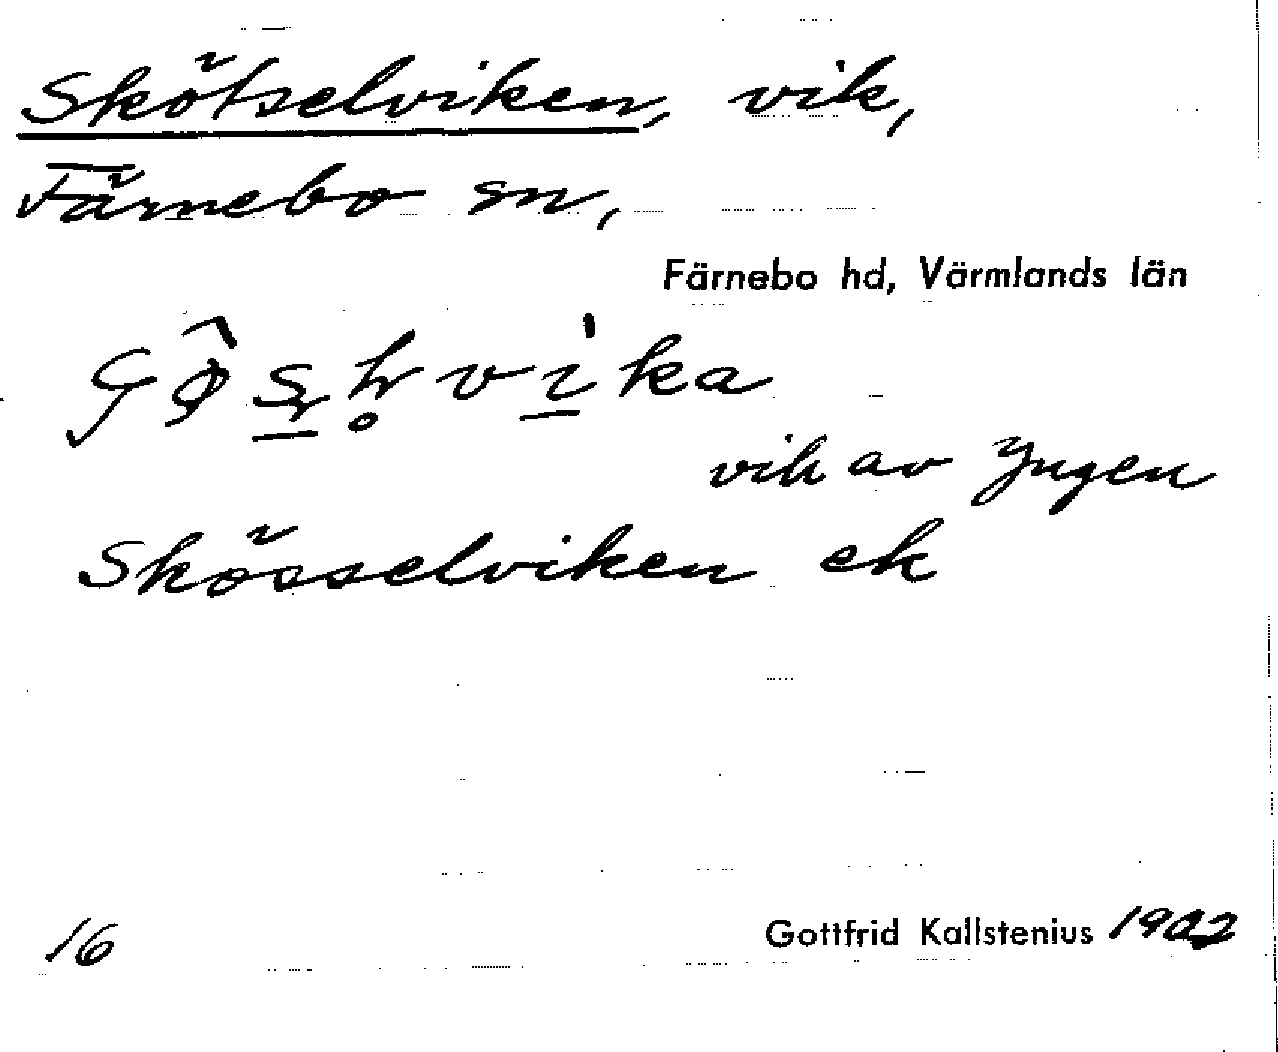 Skötselviken, vik,
Färnebo sn,
Färnebo hd, Värmlands län
vik av Yngen
Skösselviken ek
16
Gottfrid Kallstenius 1902